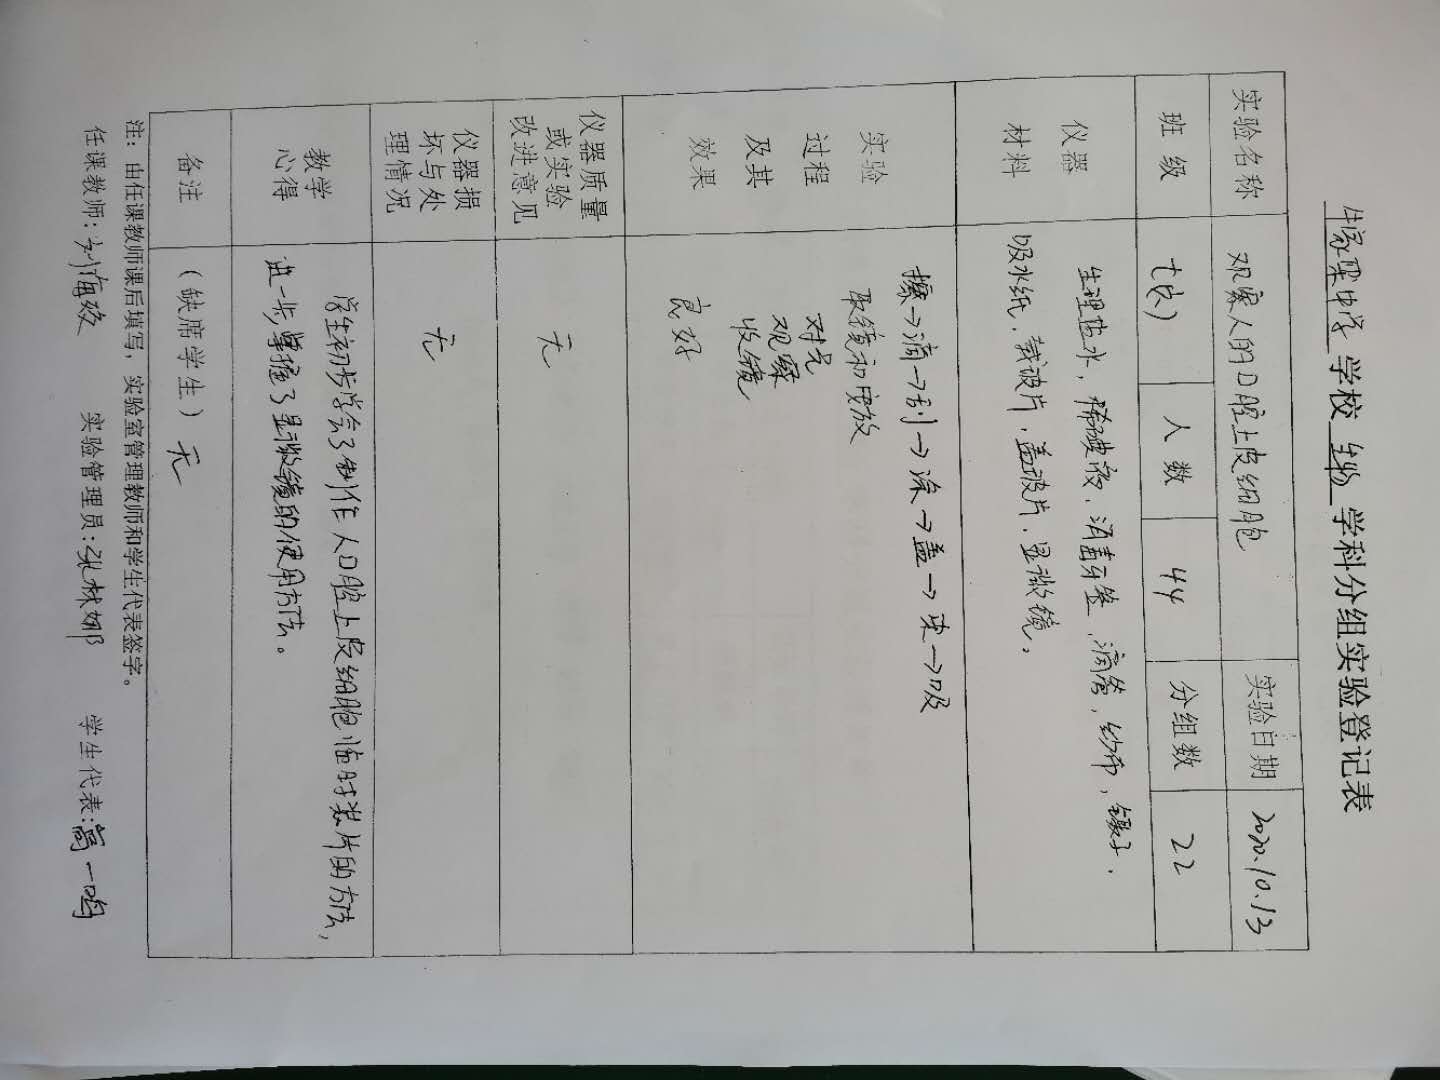 牛家梁中学 学校 生物 学科分组实验登记表
实验名称 观察人的口腔上皮细胞 实验日期 2020.10.13
班级 七(6) 人数 44 分组数 22
仪器
材料
生理盐水，稀碘液，消毒牙签，滴管，纱布，镊子，
吸水纸，载玻片，盖玻片，显微镜。
实验
过程
及其
效果
擦→滴→刮→涂→盖→染→吸
取镜和安放
对光
观察
收镜
良好
仪器质量
或实验
改进意见
无
仪器损
坏与处
理情况
无
教学
心得
学生初步学会了制作人口腔上皮细胞临时装片的方法，
进一步掌握了显微镜的使用方法。
备注 (缺席学生) 无
注：由任课教师课后填写，实验室管理教师和学生代表签字。
任课教师：刘海 实验管理员：张林娜 学生代表：高一鸣